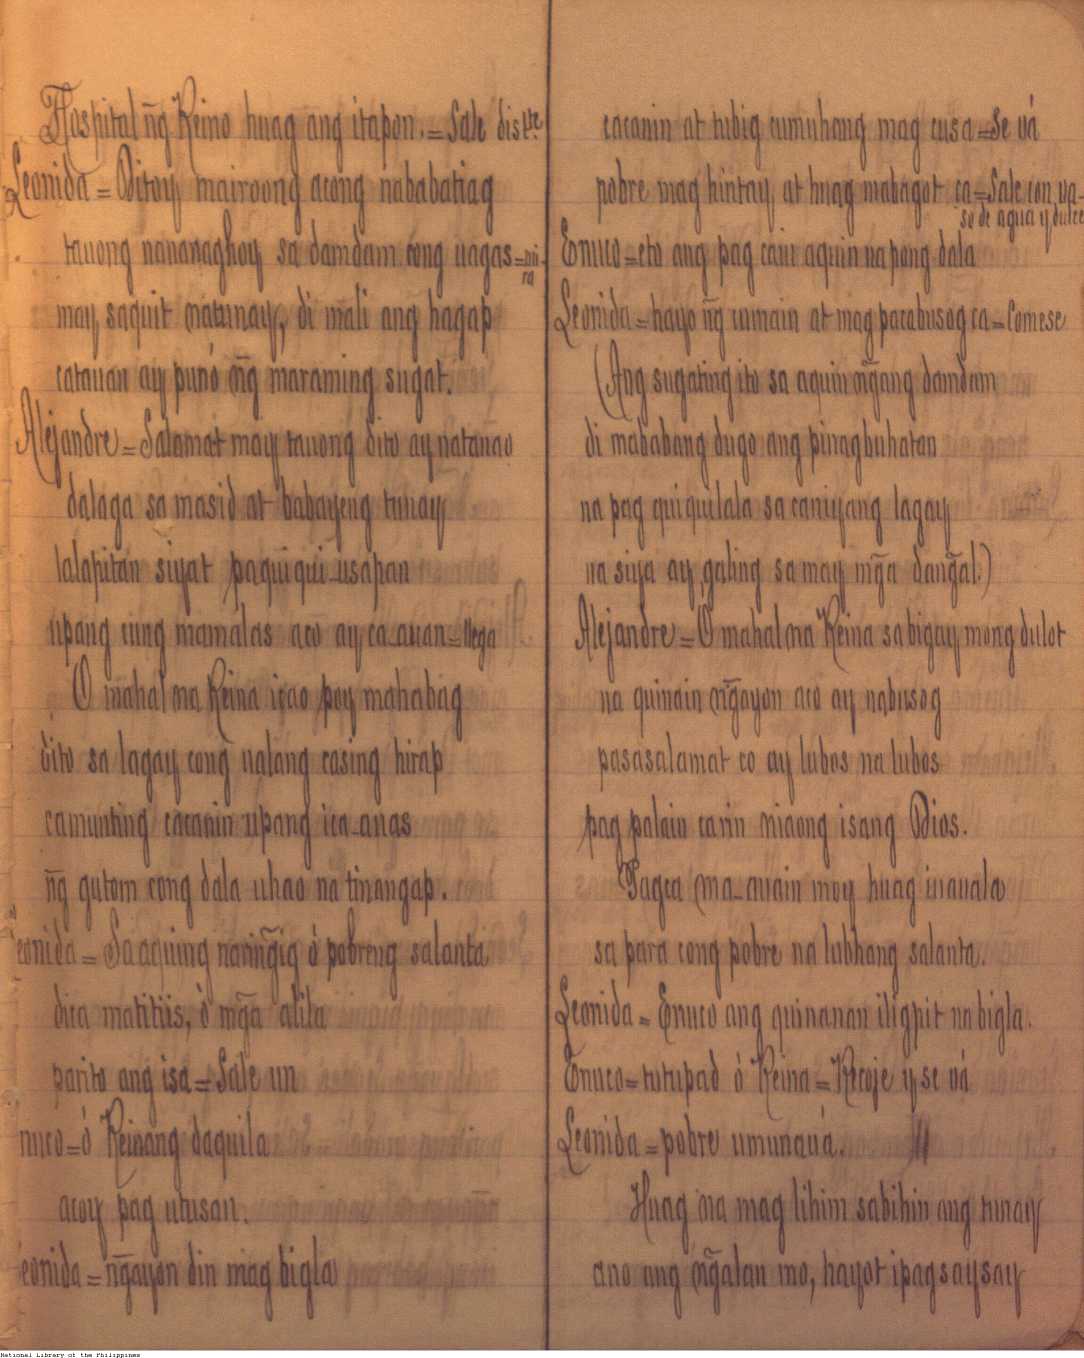 Hospital ñg Reino huag ang itapon. = Sale disfte
Leonida = Ditoy mairoong acong nababatiag
tauong nananaghoy sa damdam cong uagas = mi-
ra
may saquit matunay, di mali ang hagap
catauan ay punó ñg maraming sugat.
Alejandre = Salamat may tauong dito ay natanao
dalaga sa masid at babayeng tunay
lalapitan siyat paquiqui-usapan
upang cung mamalas aco ay ca-auan = llega
O mahal na Reina icao poy mahabag
dito sa lagay cong ualang casing hirap
camunting cacanin upang ica-auas
ñg gutom cong dala uhao na tinangap.
eonida = Sa aquing naringig ó pobreng salanta
dica matitiis, ó mg̃a alila
parito ang isa = Sale un
nuco = ó Reinang daquila
acoy pag utusan.
eonida = ñgayon din mag bigla
cacanin at tubig cumuhang mag cusa = Se vá
pobre mag hintay, at huag mabagot ca = Sale con va-
so de agua y dulce
Enuco = eto ang pag cain aquin na pong dala
Leonida = hayo ñg cumain at mag pacabusog ca = Comese
(Ang sugating ito sa aquin mg̃ang damdam
di mababang dugo ang pinagbuhatan
na pag quiquilala sa caniyang lagay
na siya ay galing sa may mg̃a dang̃al.)
Alejandre = O mahal na Reina sa bigay mong dulot
na quinain ng̃ayon aco ay nabusog
pasasalamat co ay lubos na lubos
pag palain ca rin niaong isang Dios.
Pagca ma-auain moy huag iuauala
sa para cong pobre na lubhang salanta.
Leonida = Enuco ang quinanan iligpit na bigla.
Enuco = tutupad ó Reina = Recoje y se vá
Leonida = pobre umunauá. //
Huag na mag lihim sabihin ang tunay
ano ang ng̃alan mo, hayot ipagsaysay
National Library of the Philippines